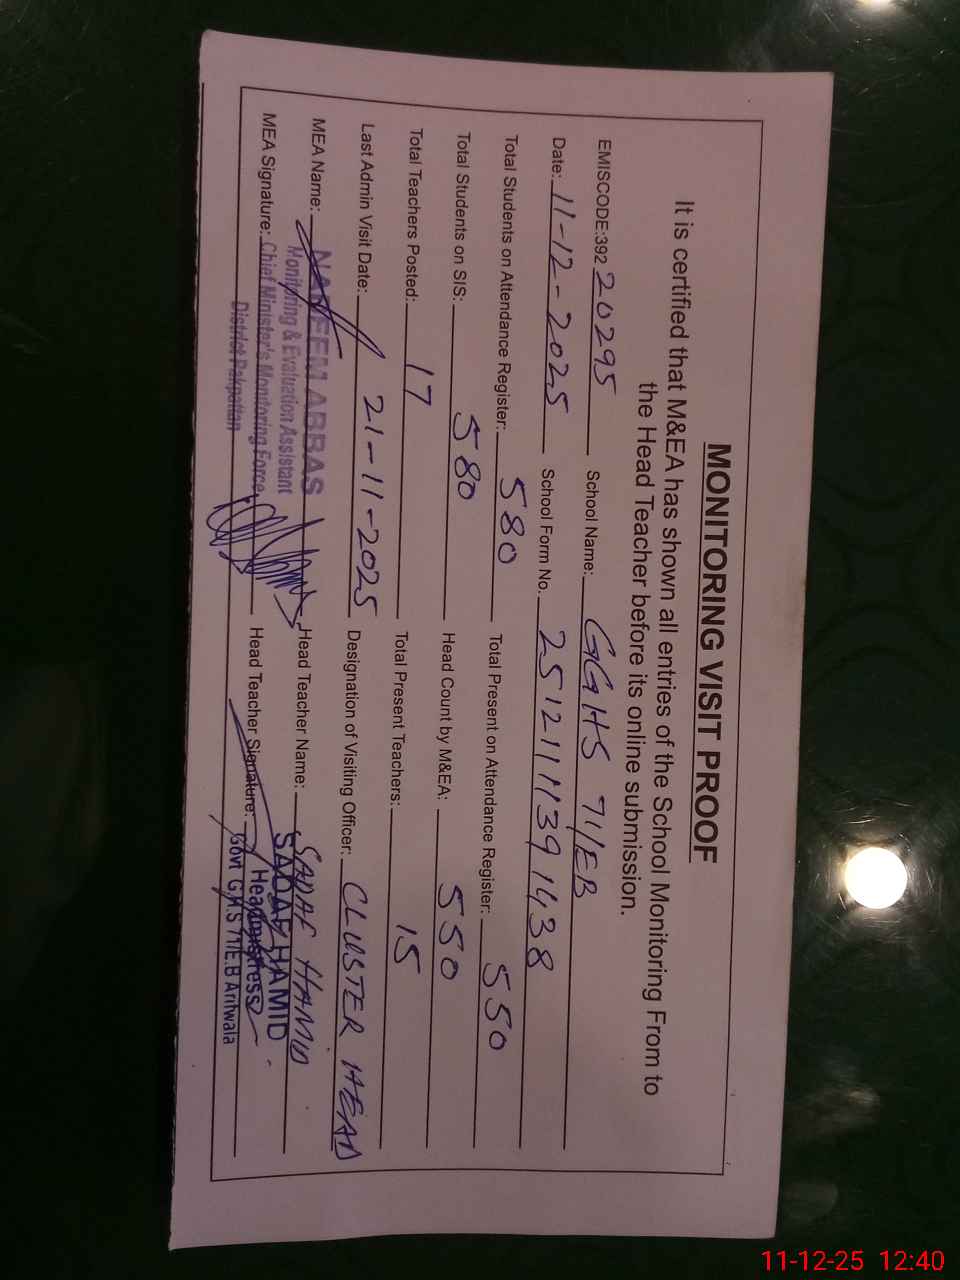 MONITORING VISIT PROOF
It is certified that M&EA has shown all entries of the School Monitoring From to
the Head Teacher before its online submission.
EMISCODE:392 20295 School Name: GGHS 71/EB
Date: 11-12-2025 School Form No. 251211139 1438
Total Students on Attendance Register: 580 Total Present on Attendance Register: 550
Total Students on SIS: 580 Head Count by M&EA: 550
Total Teachers Posted: 17 Total Present Teachers: 15
Last Admin Visit Date: 21-11-2025 Designation of Visiting Officer: CLUSTER HEAD
MEA Name: NADEEM ABBAS Head Teacher Name: SADAF HAMID
Monitoring & Evaluation Assistant SADAF HAMID
MEA Signature: Chief Minister's Monitoring Force Head Teacher Signature: Headmistress
District Pakpattan Govt G.H.S 71/E.B Arifwala
11-12-25 12:40